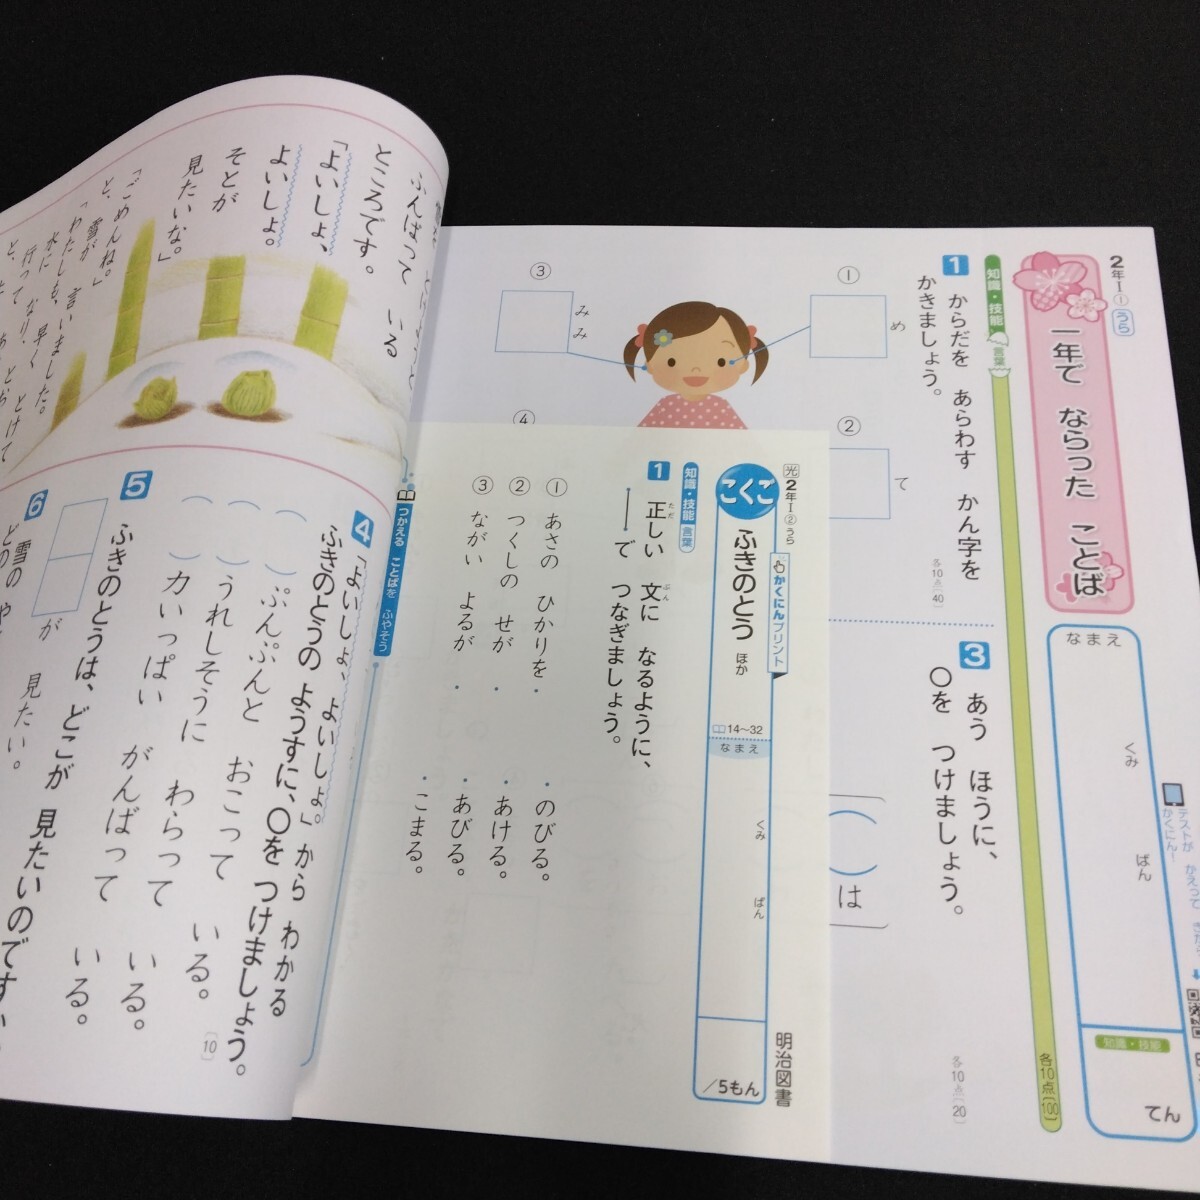 2年Ⅰ①うら
一年で ならった ことば
なまえ
くみ
ばん
知識・技能
てん
テストが かえって きたら
かくにん!
知識・技能 言葉
各10点〔100〕
1 からだを あらわす かん字を
かきましょう。
各10点〔40〕
① め
② て
③ みみ
④
3 あう ほうに、
〇を つけましょう。
各10点〔20〕
は
光2年Ⅰ②うら
こくご ふきのとう ほか
かくにんプリント
14〜32
なまえ
くみ
ばん
/5もん
明治図書
知識・技能 言葉
1 正しい 文に なるように、
ただ
ぶん
――で つなぎましょう。
① あさの ひかりを・
② つくしの せが・
③ ながい よるが・
・のびる。
・あける。
・あびる。
・こまる。
つかえる ことばを ふやそう
ふんばって いる
ところです。
「よいしょ、
よいしょ。
そとが
見たいな。」
「ごめんね。」
と、雪が 言いました。
「わたしも、早く とけて
水に なり、
4 「よいしょ、よいしょ。」から わかる
ふきのとうの ようすに、〇を つけましょう。
〔10〕
( )ぷんぷんと おこって いる。
( )うれしそうに わらって いる。
( )力いっぱい がんばって いる。
5 ふきのとうは、どこが 見たいのですか
が 見たい。
6 雪の